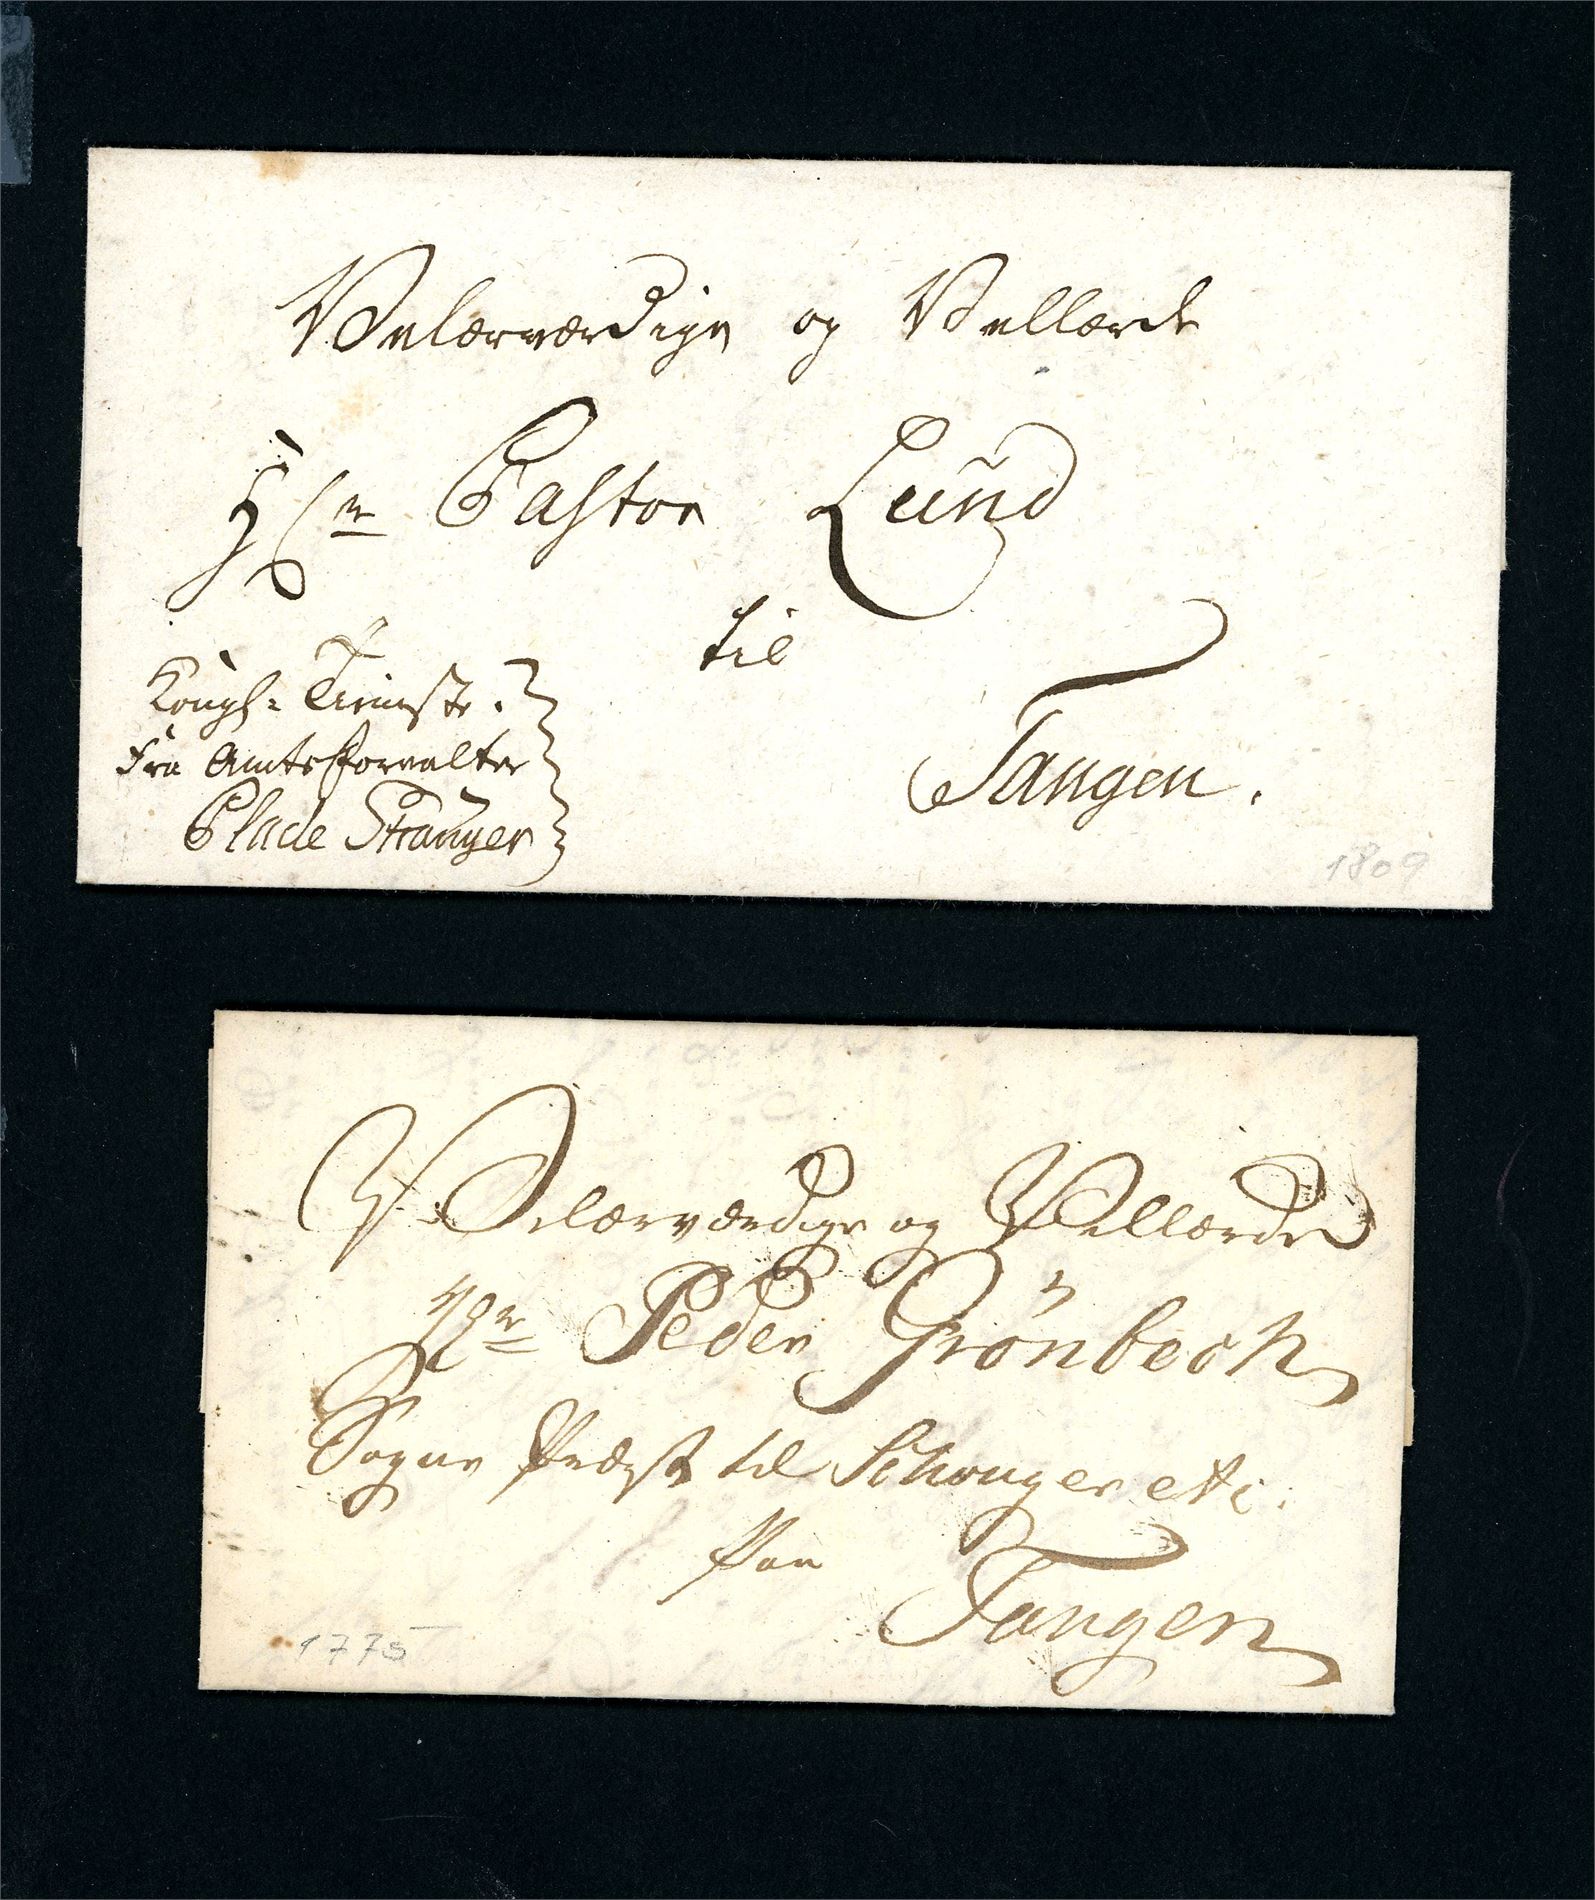 Velærværdige og Vellærde
Hr Pastor Lund
til
Tangen.
Kongl: Tieniste.
Fra Amtsforvalter
Plade Stranger
1809
Velærværdige og Vellærde
Hr Peder Grönbech
Sogne Præst til Schouger etc.
paa
Tangen
1775